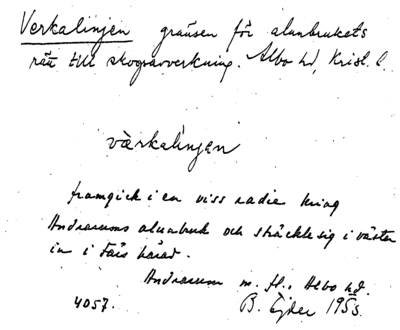 Verkalinjen gränsen för alunbrukets
rätt till skogsavverkning. Albo hd, Krist. l.
värkalinjen
framgick i en viss radie kring
Andrarums alunbruk och sträckte sig i väster
in i Färs härad.
Andrarum m. fl., Albo hd.
4057. B. Ejder 1955.